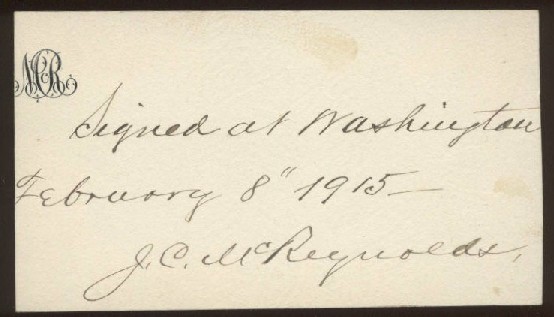 McR
Signed at Washington
February 8" 1915—
J.C. McReynolds,